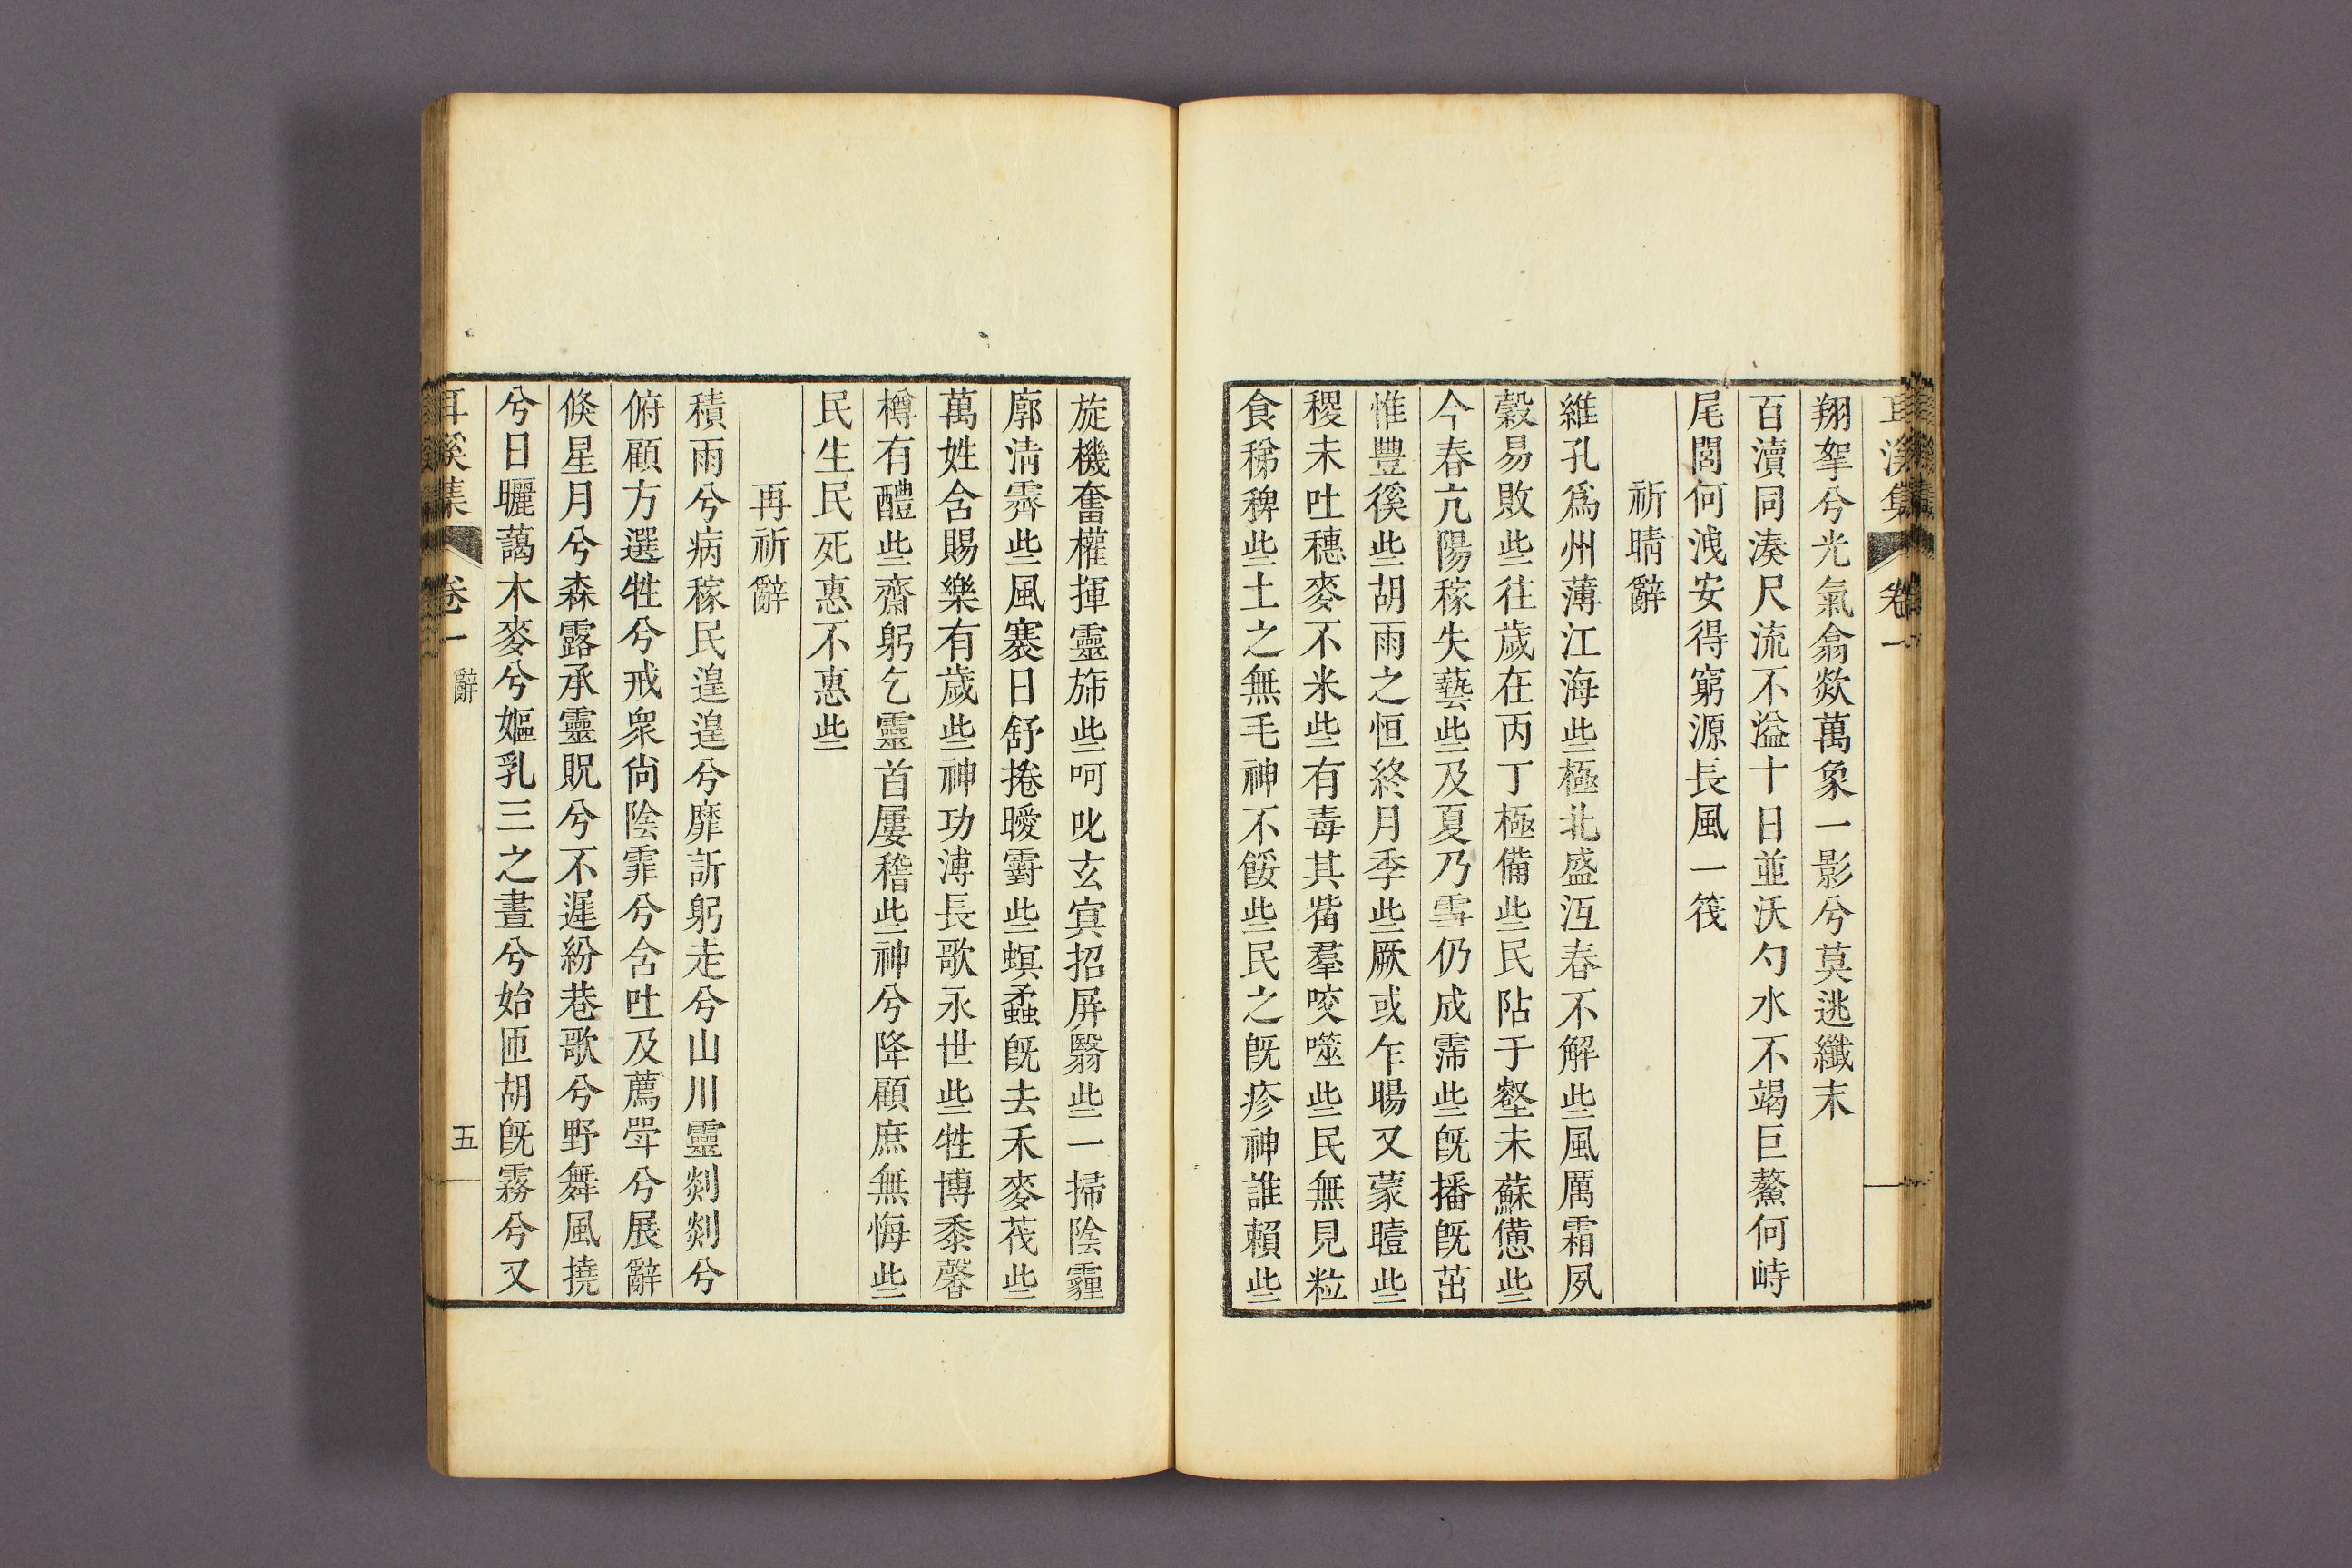 耳溪集 卷一
翔拏兮光氣翕歘萬象一影兮莫逃纖末
百瀆同湊尺流不溢十日並沃勺水不竭巨鰲何峙
尾閭何洩安得窮源長風一筏
祈晴辭
維孔爲州薄江海些極北盛沍春不解些風厲霜夙
穀易敗些往歲在丙丁極備些民阽于壑未蘇憊些
今春亢陽稼失藝些及夏乃雪仍成霈些旣播旣茁
惟豐徯些胡雨之恒終月季些厥或乍暘又蒙曀些
稷未吐穗麥不米些有毒其觜羣咬噬些民無見粒
食稊稗些土之無毛神不餒些民之旣疹神誰賴些
旋機奮權揮靈旆些呵叱玄寅招屏翳些一掃陰霾
廓淸霽些風褰日舒捲曖霴些螟蟊旣去禾麥茷些
萬姓含賜樂有歲些神功溥長歌永世些牲博黍馨
樽有醴些齋躬乞靈首屢稽些神兮降顧庶無悔些
民生民死惠不惠些
再祈辭
積雨兮病稼民遑遑兮靡訴躬走兮山川靈剡剡兮
俯顧方選牲兮戒衆尙陰霏兮含吐及薦斝兮展辭
倏星月兮森露承靈貺兮不遲紛巷歌兮野舞風撓
兮日曬藹木麥兮嫗乳三之晝兮始匝胡旣霧兮又
耳溪集 卷一 辭 五